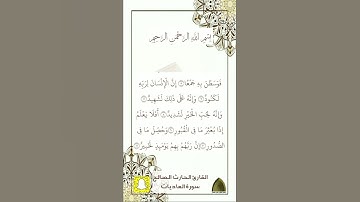 بسم الله الرحمن الرحيم
فَوَسَطْنَ بِهِ جَمْعًا ۝ إِنَّ الْإِنْسَانَ لِرَبِّهِ
لَكَنُودٌ ۝ وَإِنَّهُ عَلَى ذَلِكَ لَشَهِيدٌ ۝
وَإِنَّهُ لِحُبِّ الْخَيْرِ لَشَدِيدٌ ۝ أَفَلَا يَعْلَمُ
إِذَا بُعْثِرَ مَا فِي الْقُبُورِ ۝ وَحُصِّلَ مَا فِي
الصُّدُورِ ۝ إِنَّ رَبَّهُمْ بِهِمْ يَوْمَئِذٍ لَخَبِيرٌ ۝
القارئ الحارث الصالح
سورة العاديات